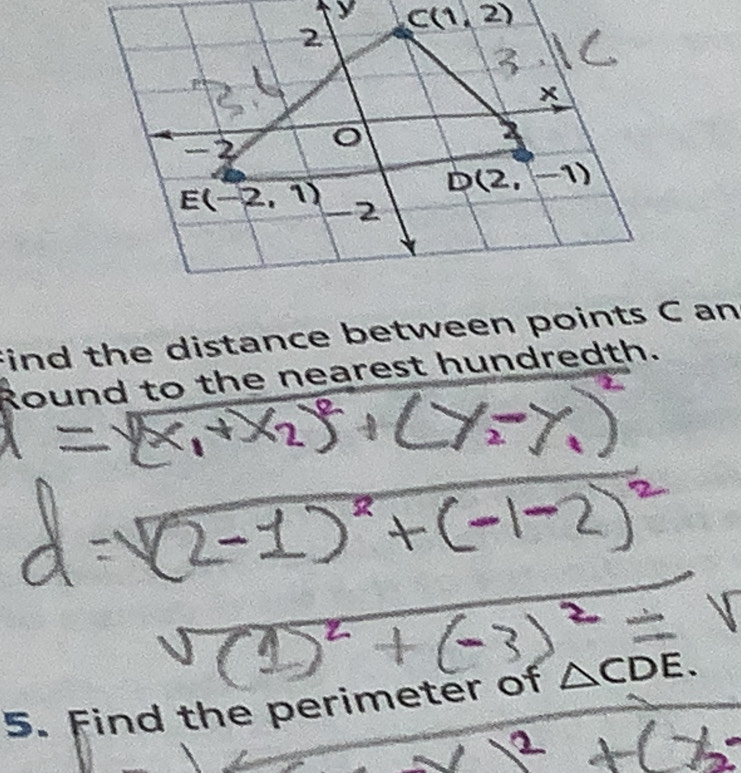 y
C(1, 2)
2
3.4
3.1C
x
-2
O
2
E(-2, 1)
D(2, -1)
-2
Find the distance between points C an
Round to the nearest hundredth.
d = √(x₁+x₂)²+(y₂-y₁)²
d = √(2-1)²+(-1-2)²
√(1)²+(-3)² = √
5. Find the perimeter of △CDE.